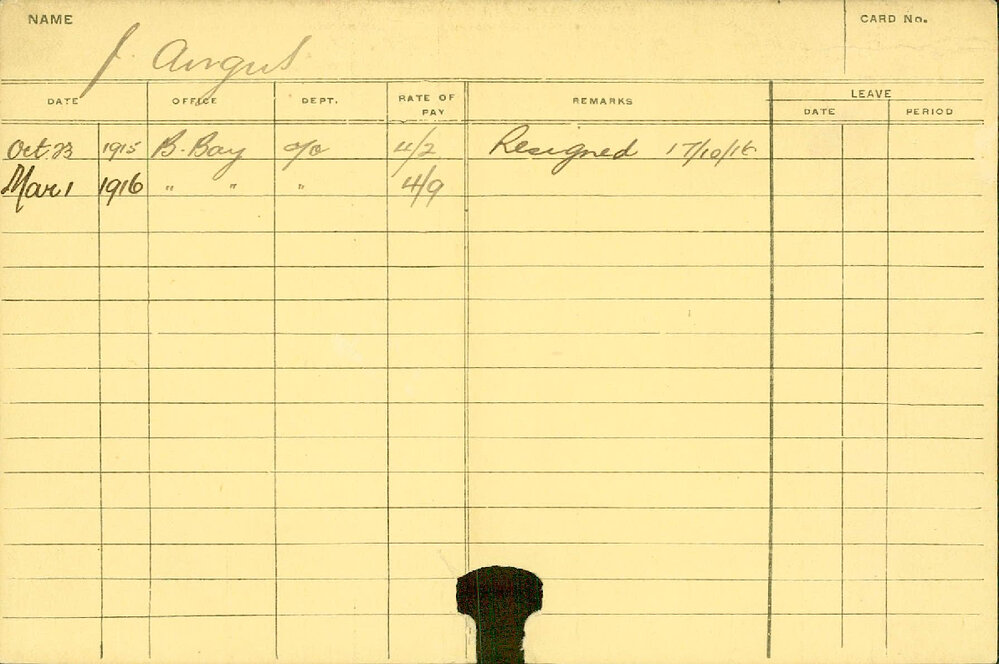 NAME
J. Angus
CARD No.
DATE OFFICE DEPT. RATE OF PAY REMARKS LEAVE
DATE PERIOD
Oct. 23 1915 B. Bay c/o 4/2 Resigned 17/10/16
Mar 1 1916 " " " 4/9